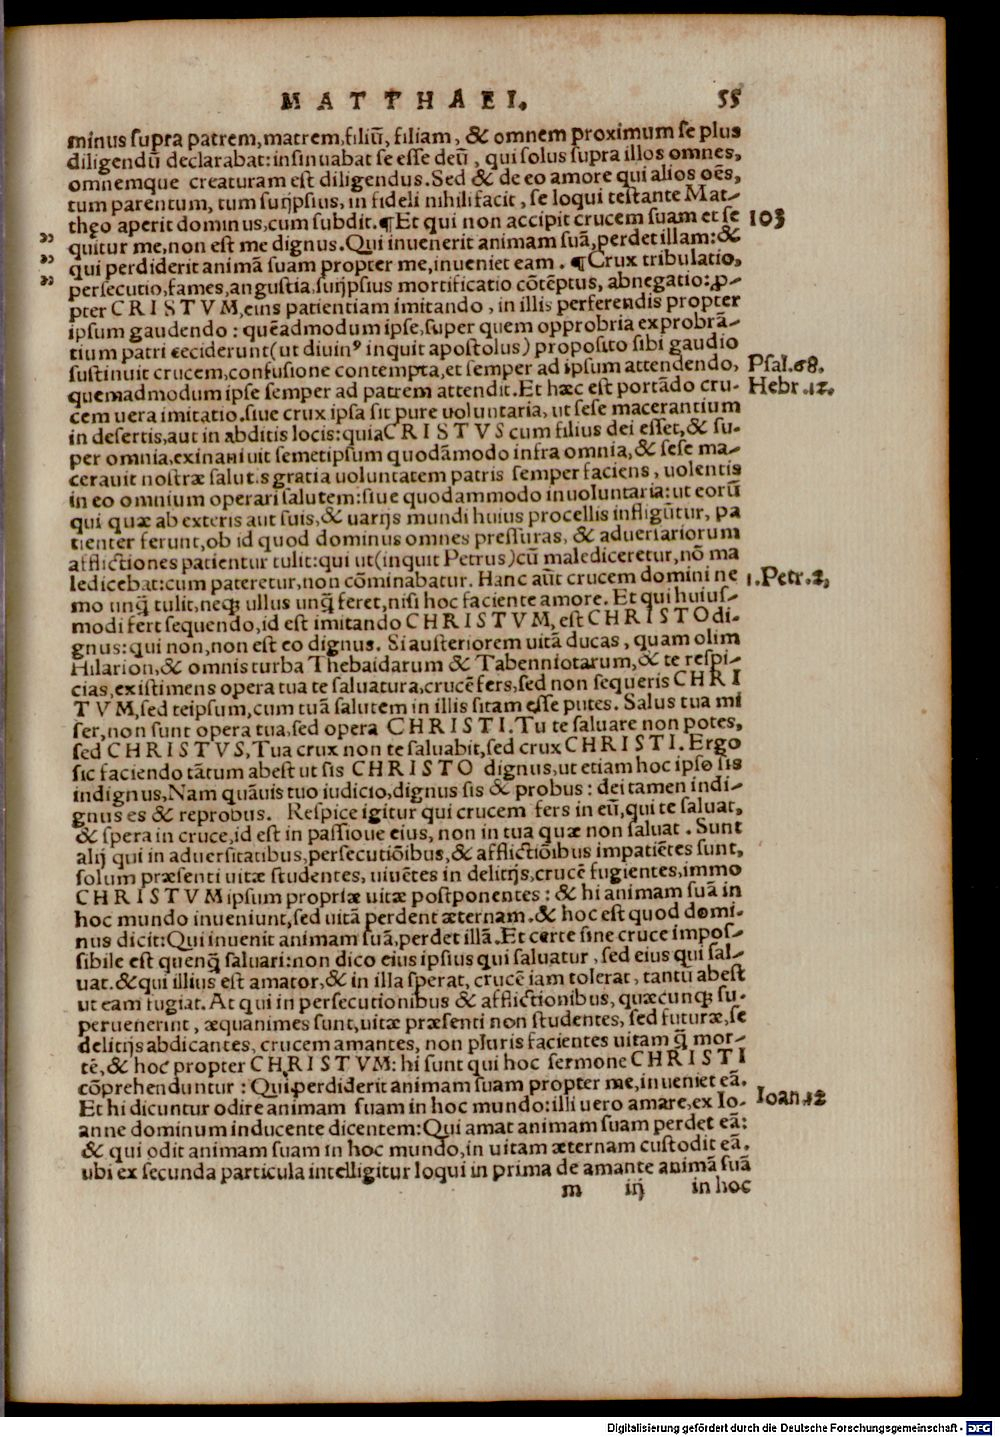 MATTHAEI. 55
minus supra patrem, matrem, filiū, filiam, & omnem proximum se plus
diligendū declarabat: insinuabat se esse deū, qui solus supra illos omnes,
omnemque creaturam est diligendus. Sed & de eo amore qui alios oēs,
tum parentum, tum suijpsius, in fideli nihilifacit, se loqui testante Mat-
thęo aperit dominus, cum subdit. ¶ Et qui non accipit crucem suam et se 103
" quitur me, non est me dignus. Qui inuenerit animam suā, perdet illam: &
" qui perdiderit animā suam propter me, inueniet eam. ¶ Crux tribulatio,
" persecutio, fames, angustia, suijpsius mortificatio cōtēptus, abnegatio: ꝓ-
pter CRISTVM, eius patientiam imitando, in illis perferendis propter
ipsum gaudendo: quēadmodum ipse, super quem opprobria exprobrā-
tium patri ceciderunt (ut diuinꝰ inquit apostolus) proposito sibi gaudio
sustinuit crucem, confusione contempta, et semper ad ipsum attendendo, Psal.68.
quemadmodum ipse semper ad patrem attendit. Et hæc est portādo cru- Hebr.12.
cem uera imitatio. siue crux ipsa sit pure uoluntaria, ut sese macerantium
in desertis, aut in abditis locis: quia CRISTVS cum filius dei esset, & su-
per omnia, exinaniuit semetipsum quodāmodo infra omnia, & sese ma-
cerauit nostræ salutis gratia uoluntatem patris semper faciens, uolentis
in eo omnium operari salutem: siue quodammodo inuoluntaria: ut eorū
qui quæ ab exteris aut suis, & uarijs mundi huius procellis infligūtur, pa
tienter ferunt, ob id quod dominus omnes pressuras, & aduersariorum
afflictiones patienter tulit: qui ut (inquit Petrus) cū malediceretur, nō ma
ledicebat: cum pateretur, non cōminabatur. Hanc aūt crucem domini ne 1.Petr.2,
mo unq̄ tulit, neqꝫ ullus unq̄ feret, nisi hoc faciente amore. Et qui huius-
modi fert sequendo, id est imitando CHRISTVM, est CHRISTO di-
gnus: qui non, non est eo dignus. Si austeriorem uitā ducas, quam olim
Hilarion, & omnis turba Thebaidarum & Tabenniotarum, & te respi-
cias, existimens opera tua te saluatura, crucē fers, sed non sequeris CHRI
TVM, sed teipsum, cum tuā salutem in illis sitam esse putes. Salus tua mi
ser, non sunt opera tua, sed opera CHRISTI. Tu te saluare non potes,
sed CHRISTVS, Tua crux non te saluabit, sed crux CHRISTI. Ergo
sic faciendo tātum abest ut sis CHRISTO dignus, ut etiam hoc ipso sis
indignus, Nam quāuis tuo iudicio, dignus sis & probus: dei tamen indi-
gnus es & reprobus. Respice igitur qui crucem fers in eū, qui te saluat,
& spera in cruce, id est in passioue eius, non in tua quæ non saluat. Sunt
alij qui in aduersitatibus, persecutiōibus, & afflictiōibus impatiētes sunt,
solum præsenti uitæ studentes, uiuētes in delitijs, crucē fugientes, immo
CHRISTVM ipsum propriæ uitæ postponentes: & hi animam suā in
hoc mundo inueniunt, sed uitā perdent æternam. & hoc est quod domi-
nus dicit: Qui inuenit animam suā, perdet illā. Et certe sine cruce impos-
sibile est quenq̄ saluari: non dico eius ipsius qui saluatur, sed eius qui sal-
uat. & qui illius est amator, & in illa sperat, crucē iam tolerat, tantū abest
ut eam fugiat. At qui in persecutionibus & afflictionibus, quæcunqꝫ su-
peruenerint, æquanimes sunt, uitæ præsenti non studentes, sed futuræ, se
delitijs abdicantes, crucem amantes, non pluris facientes uitam q̄ mor-
tē, & hoc propter CHRISTVM: hi sunt qui hoc sermone CHRISTI
cōprehenduntur: Qui perdiderit animam suam propter me, inueniet eā.
Et hi dicuntur odire animam suam in hoc mundo: illi uero amare, ex Io- Ioan.12
anne dominum inducente dicentem: Qui amat animam suam perdet eā:
& qui odit animam suam in hoc mundo, in uitam æternam custodit eā.
ubi ex secunda particula intelligitur loqui in prima de amante animā suā
m iij in hoc
Digitalisierung gefördert durch die Deutsche Forschungsgemeinschaft - DFG